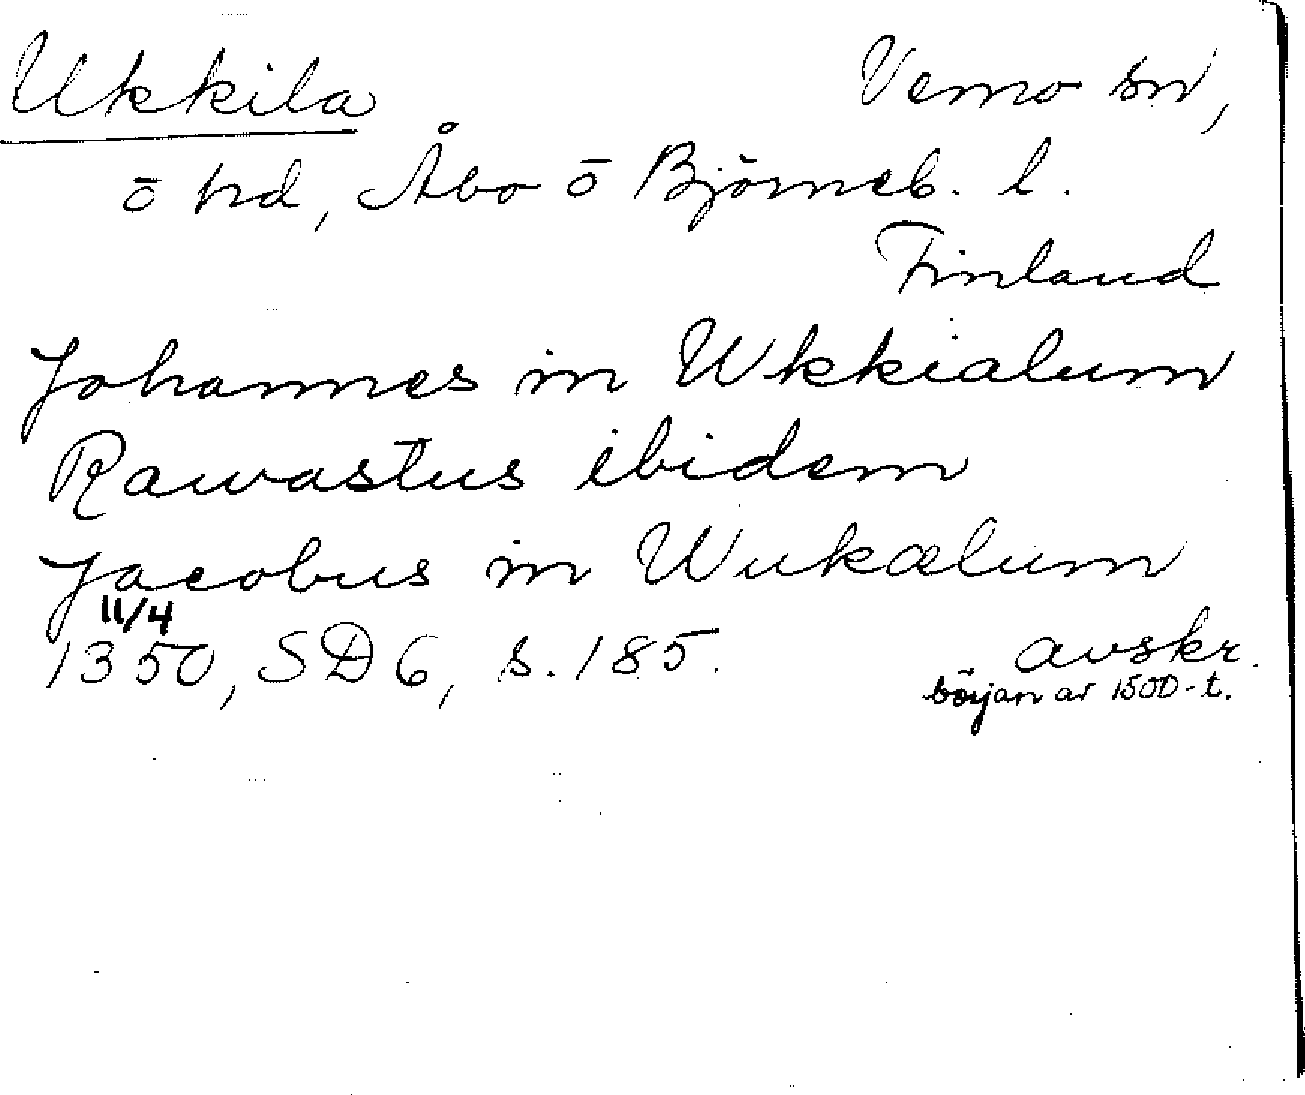 Ukkila Vemo sn,
ō hd, Åbo ō Björneb. l.
Finland
Johannes in Wkkialum
Rawastus ibidem
Jacobus in Wukælum
11/4
1350, SD 6, s. 185. avskr.
början av 1500-t.